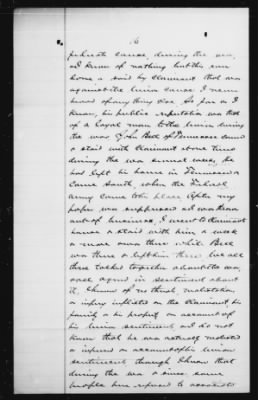 6
federate cause during the war,
as I knew of nothing but his own
home & said by Claimant that was
against the Union cause I never
heard of any thing else. So far as I
know, his public reputation was that
of a loyal man to the Union, during
the war. John Bell of Tennessee came
& staid with Claimant about
during the war several weeks, he
had left his home in Tennessee &
came South, when the Federal
army came After my
paper was suppressed & I was thrown
out of business, I went to Claimant
house & staid with him a week
or more own there while Bell
was there & left him there. We all
three talked together about the war,
and agreed in sentiment about
it. I know of no threats, molestation
or injury inflicted on the Claimant, his
family or his property on account of
his Union sentiments, and do not
know that he was molested
or injured on account of his Union
sentiments though I know that
during the war & since some
people have refused to associate